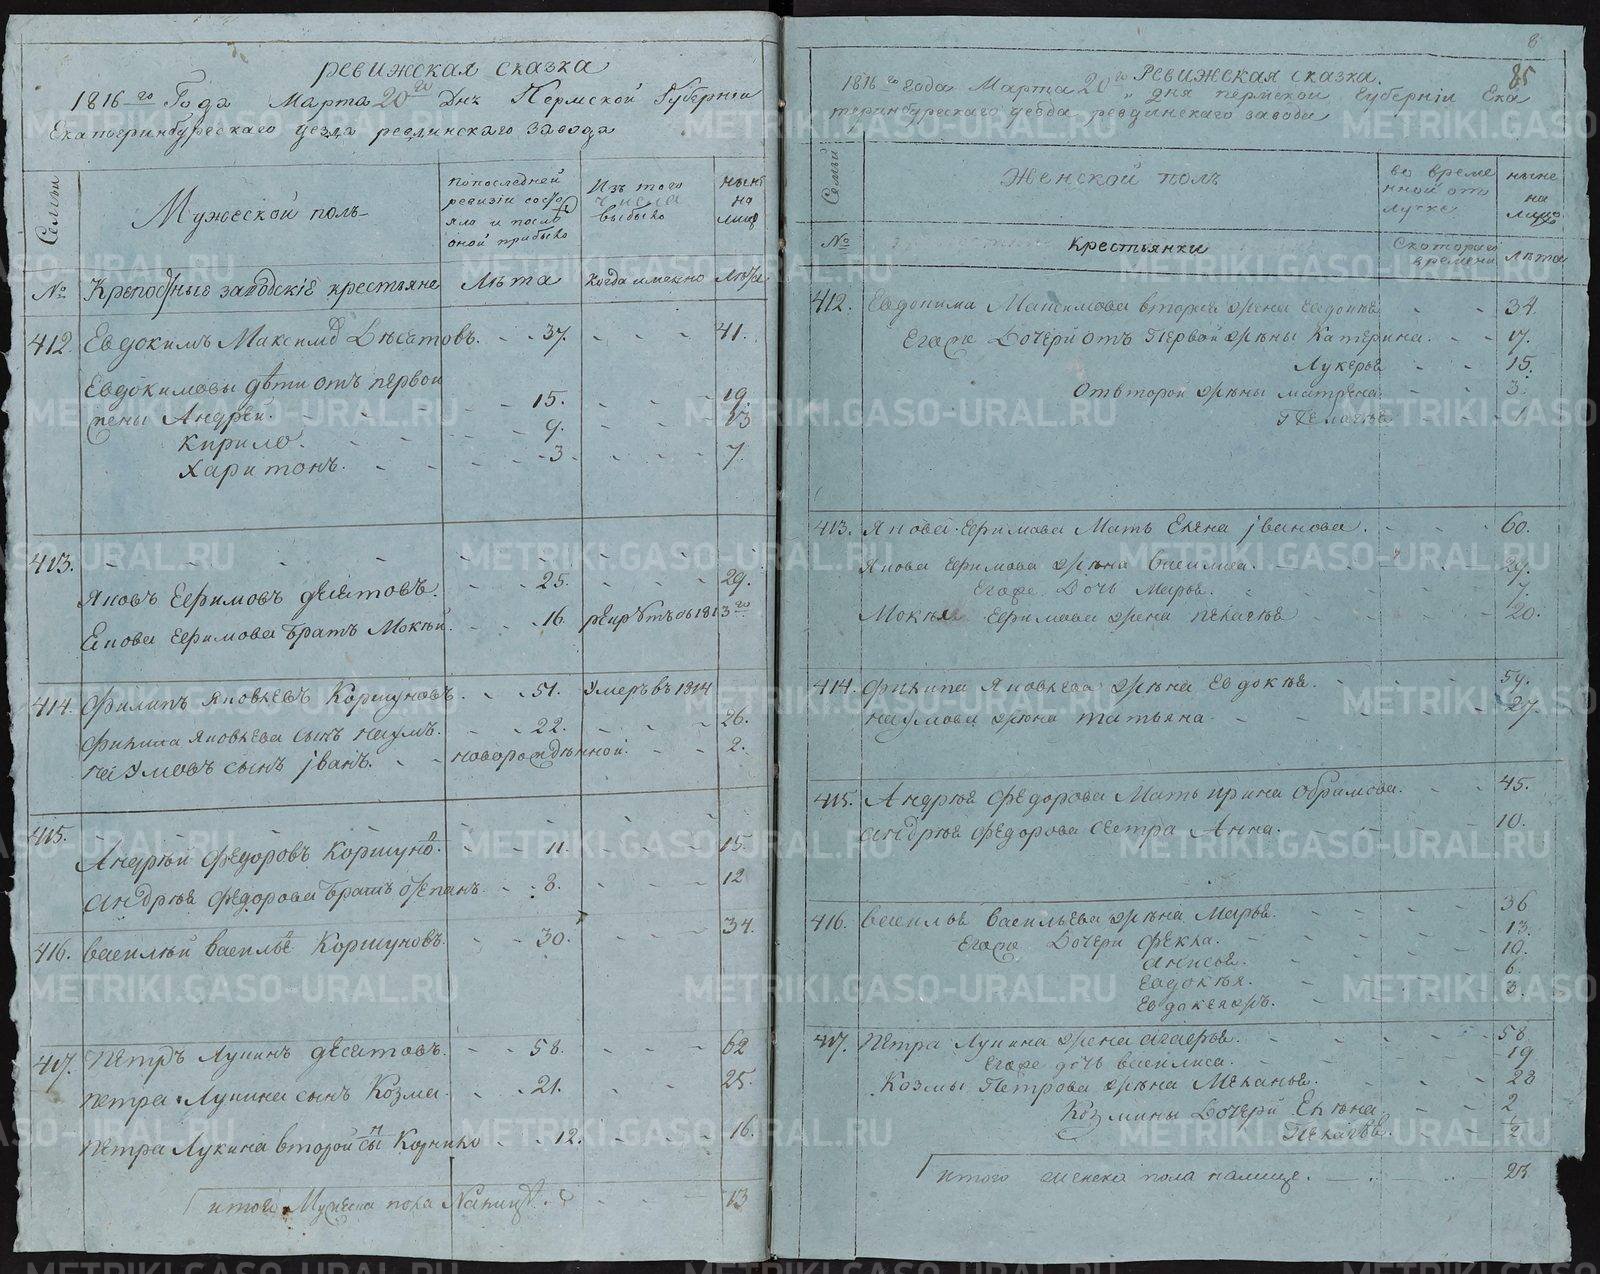 ревижская сказка
1816го Года Марта 20го Дня Пермской Губернiи
Екатеринбургскаго уезда ревдинскаго завода
Семьи
Мужеской полъ
по последней ревизiи состояло и после оной прибыло
Изъ того числа выбыло
ныне на лицо
№ Крепостные заводскiе крестьяне Лѣта Когда именно Лѣта
412. Евдокимъ Максимо Дѣсятовъ. 37. 41.
Евдокимовы дѣти отъ первой
жены Андрей. 15. 19.
Кирило. 9. 13
Харитонъ. 3 7.
413.
Яковъ Ефимовъ десятовъ. 25. 29.
Якова Ефимова братъ Мокѣй. 16. рекрутъ въ 1813го
414. Филипъ Яковлевъ Коршуновъ. 51. Умеръ въ 1814
Филипа Яковлева сынъ наумъ. 22. 26.
наумовъ сынъ Iванъ. новорожденной. 2.
415.
Андрѣй Федоровъ Коршуно. 11. 15.
Андрѣя Федорова братъ Степанъ. 8. 12
416. Василѣй Василье Коршуновъ. 30. 34.
417. Петръ Лукинъ десятовъ. 58. 62
Петра Лукина сынъ Козма. 21. 25.
Петра Лукина второй сынъ Корнило 12. 16.
итого Мужеска пола Налицо. 13
8
85
Ревижская сказка.
1816го года Марта 20го дня пермской Губернiи Ека
теринбургскаго уезда ревдинскаго завода
Семьи
Женской полъ
во временной отлучке
ныне на лицо
№ Крестьянки Скотораго времени Лѣта
412. Евдокима Максимова вторая жена Евдокѣя 34.
Егоже Дочери отъ Первой жѣны Катерина. 17.
Лукерья 15.
Отвторой жѣны матрена 3.
Пелагѣя 1
413. Якова Ефимова Мать Елена Iванова. 60.
Якова Ефимова жѣна Василиса. 29.
Егоже Дочь Марья. 7.
Мокѣя Ефимова жена пелагѣя 20.
414. Филипа Яковлева жѣна Евдокѣя. 59.
наумова жѣна татьяна. 27.
415. Андрѣя Федорова Мать ирина Обрамова. 45.
Андрѣя Федорова сестра Анна. 10.
416. Василья Васильева жѣна Марья. 36
Егоже Дочери Фекла. 13.
Анисья. 10.
Евдокѣя. 6
Евдокея жъ. 3.
417. Петра Лукина жена агафья. 58
Егоже дочь василиса. 19
Козмы Петрова жѣна Меланья. 28
Козмины Дочери Елѣна. 2
Пелагѣя. 1/2
итого женска пола налице. 23
METRIKI.GASO-URAL.RU